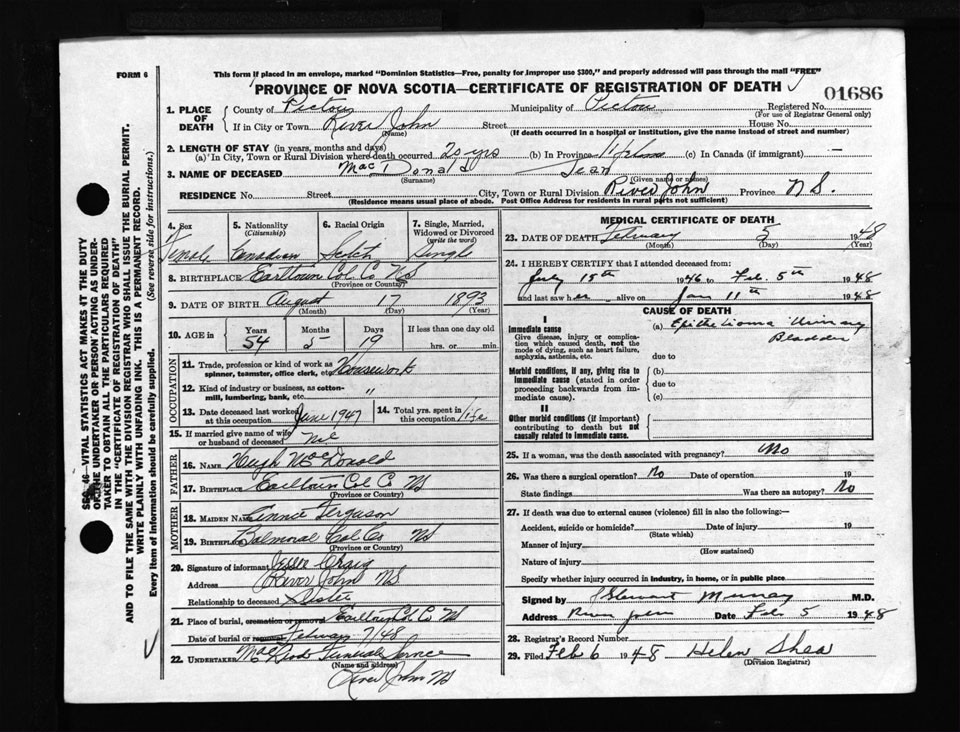 FORM 6
This form if placed in an envelope, marked "Dominion Statistics—Free, penalty for improper use $300," and properly addressed will pass through the mail "FREE"
PROVINCE OF NOVA SCOTIA—CERTIFICATE OF REGISTRATION OF DEATH
01686
1. PLACE OF DEATH
County of Pictou Municipality of Pictou Registered No.
(For use of Registrar General only)
If in City or Town River John Street House No.
(Name) (If death occurred in a hospital or institution, give the name instead of street and number)
2. LENGTH OF STAY (in years, months and days)
(a) In City, Town or Rural Division where death occurred 20 yrs (b) In Province Lifetime (c) In Canada (if immigrant) —
3. NAME OF DECEASED MacDonald Jean
(Surname) (Given name or names)
RESIDENCE No. Street City, Town or Rural Division River John Province N.S.
(Residence means usual place of abode. Post Office Address for residents in rural parts not sufficient)
4. Sex Female
5. Nationality (Citizenship) Canadian
6. Racial Origin Scotch
7. Single, Married, Widowed or Divorced (write the word) Single
8. BIRTHPLACE Earltown Col. Co NS
(Province or Country)
9. DATE OF BIRTH August 17 1893
(Month) (Day) (Year)
10. AGE in Years Months Days If less than one day old
54 5 19 hrs. or min.
OCCUPATION
11. Trade, profession or kind of work as spinner, teamster, office clerk, etc. Housework
12. Kind of industry or business, as cotton-mill, lumbering, bank, etc. "
13. Date deceased last worked at this occupation June 1947
14. Total yrs. spent in this occupation Life
15. If married give name of wife or husband of deceased Nil
FATHER
16. NAME Hugh MacDonald
17. BIRTHPLACE Earltown Col C NS
(Province or Country)
MOTHER
18. MAIDEN NAME Annie Ferguson
19. BIRTHPLACE Balmoral Col Co NS
(Province or Country)
20. Signature of informant Craig
Address River John NS
Relationship to deceased Sister
21. Place of burial, cremation or removal Earltown Col. Co NS
Date of burial or removal February 7/48
22. UNDERTAKER Funeral Service
(Name and address)
River John NS
MEDICAL CERTIFICATE OF DEATH
23. DATE OF DEATH February 5 1948
(Month) (Day) (Year)
24. I HEREBY CERTIFY that I attended deceased from:
July 15th 1946 to Feb. 5th 1948
and last saw her alive on Jan 11th 1948
CAUSE OF DEATH
I
Immediate cause
Give disease, injury or complication which caused death, not the mode of dying, such as heart failure, asphyxia, asthenia, etc.
(a) Epithelioma Urinary
Bladder
due to
Morbid conditions, if any, giving rise to immediate cause (stated in order proceeding backwards from immediate cause).
(b)
due to
(c)
II
Other morbid conditions (if important) contributing to death but not causally related to immediate cause.
25. If a woman, was the death associated with pregnancy? No
26. Was there a surgical operation? No Date of operation 19
State findings Was there an autopsy? No
27. If death was due to external causes (violence) fill in also the following:—
Accident, suicide or homicide? Date of injury 19
(State which)
Manner of injury
(How sustained)
Nature of injury
Specify whether injury occurred in industry, in home, or in public place
Signed by J Stewart Murray M.D.
Address River John Date Feb 5 1948
28. Registrar's Record Number
29. Filed Feb 6 1948 Helen Shea
(Division Registrar)
SEC. 46—VITAL STATISTICS ACT MAKES IT THE DUTY
OF THE UNDERTAKER OR PERSON ACTING AS UNDER-
TAKER TO OBTAIN ALL THE PARTICULARS REQUIRED
IN THE "CERTIFICATE OF REGISTRATION OF DEATH"
AND TO FILE THE SAME WITH THE DIVISION REGISTRAR WHO SHALL ISSUE THE BURIAL PERMIT.
WRITE PLAINLY WITH UNFADING INK. THIS IS A PERMANENT RECORD.
Every item of information should be carefully supplied. (See reverse side for instructions.)